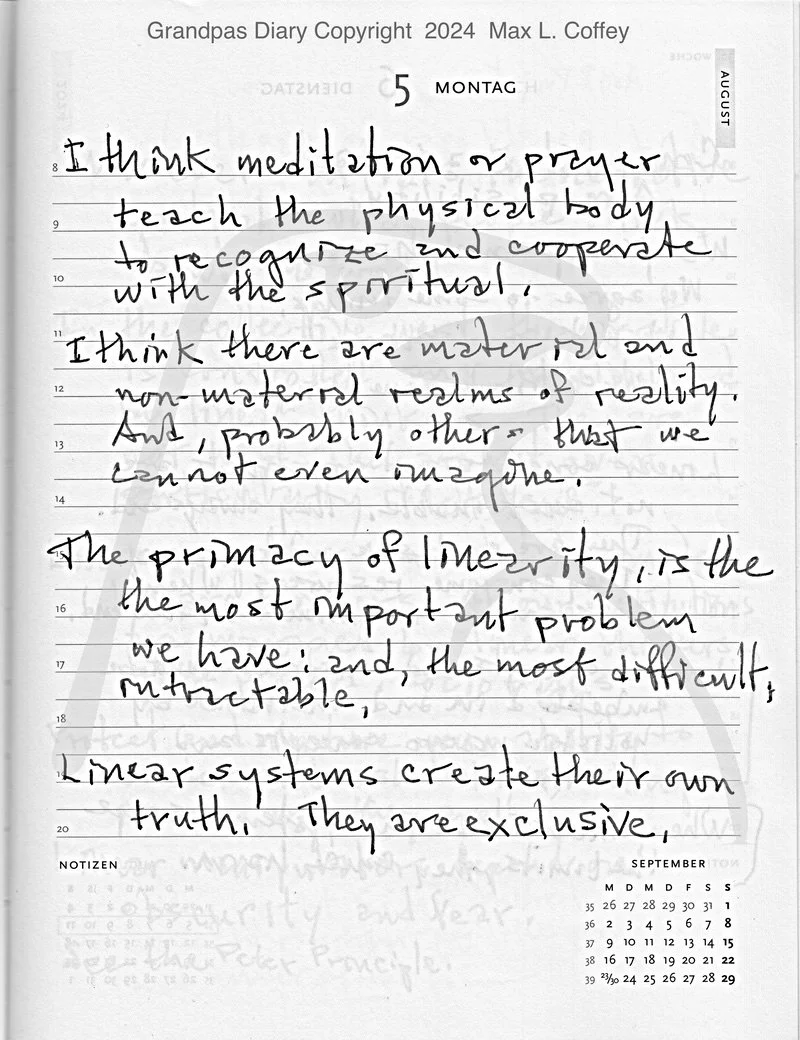 Grandpas Diary Copyright 2024 Max L. Coffey
5 MONTAG
AUGUST
8 I think meditation or prayer
teach the physical body
9
to recognize and cooperate
10
with the spiritual.
11
I think there are material and
12 non-material realms of reality.
And, probably others that we
13
cannot even imagine.
14
15 The primacy of linearity, is the
16 the most important problem
we have: and, the most difficult,
17
intractable,
18
19 Linear systems create their own
truth. They are exclusive,
20
NOTIZEN
SEPTEMBER
M D M D F S S
35 26 27 28 29 30 31 1
36 2 3 4 5 6 7 8
37 9 10 11 12 13 14 15
38 16 17 18 19 20 21 22
39 23/30 24 25 26 27 28 29